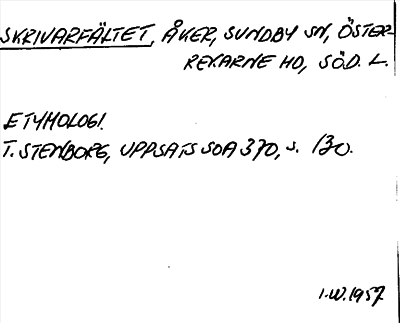 SKRIVARFÄLTET, ÅKER, SUNDBY SN, ÖSTER-
REKARNE HD, SÖD. L.
ETYMOLOGI.
T. STENBORG, UPPSATS SOA 370, s. 130.
I.W. 1957